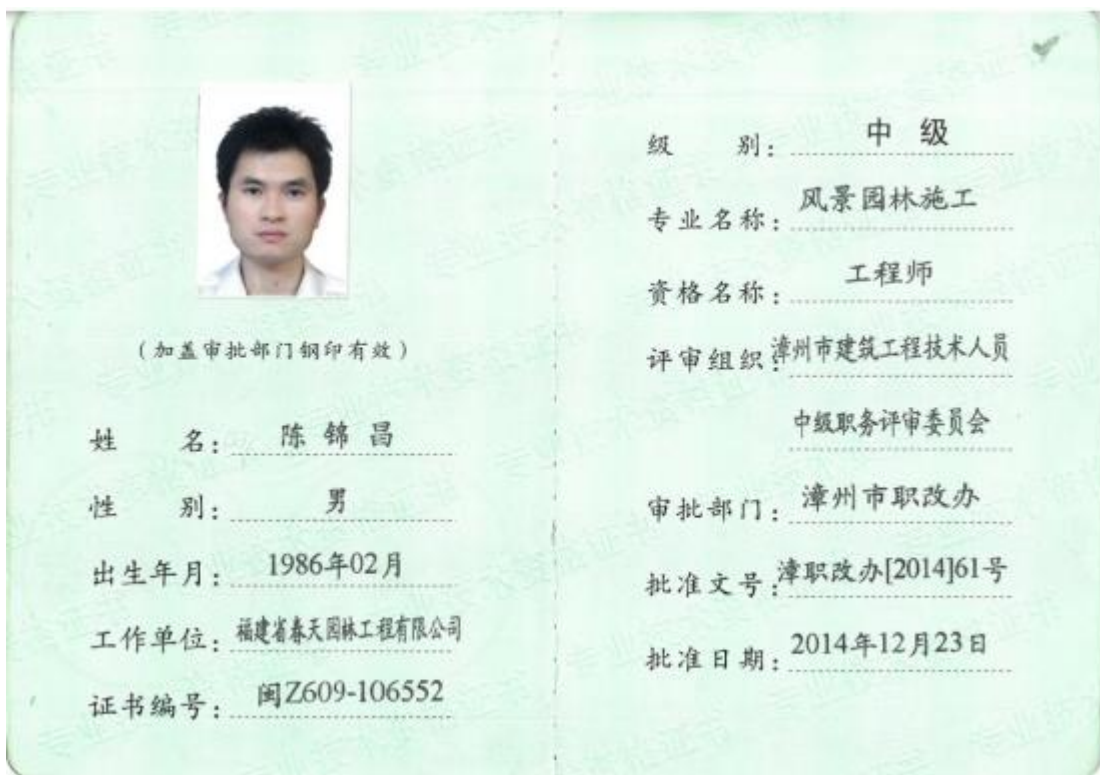 (加盖审批部门钢印有效)
姓 名: 陈锦昌
性 别: 男
出生年月: 1986年02月
工作单位: 福建省春天园林工程有限公司
证书编号: 闽Z609-106552
级 别: 中 级
专业名称: 风景园林施工
资格名称: 工程师
评审组织: 漳州市建筑工程技术人员
中级职务评审委员会
审批部门: 漳州市职改办
批准文号: 漳职改办[2014]61号
批准日期: 2014年12月23日